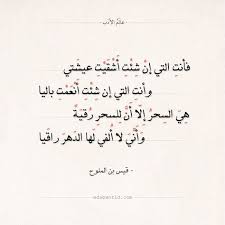 عالَمُ الأدب
فأنتِ التي إنْ شِئْتِ أشْقَيْتِ عيشَتي
وأنتِ التي إن شِئْتِ أنْعَمْتِ باليا
هِيَ السحرُ إلّا أنَّ للسحرِ رُقيَةً
وَأنّيَ لا أُلفي لها الدهرَ راقيا
- قيس بن الملوح -